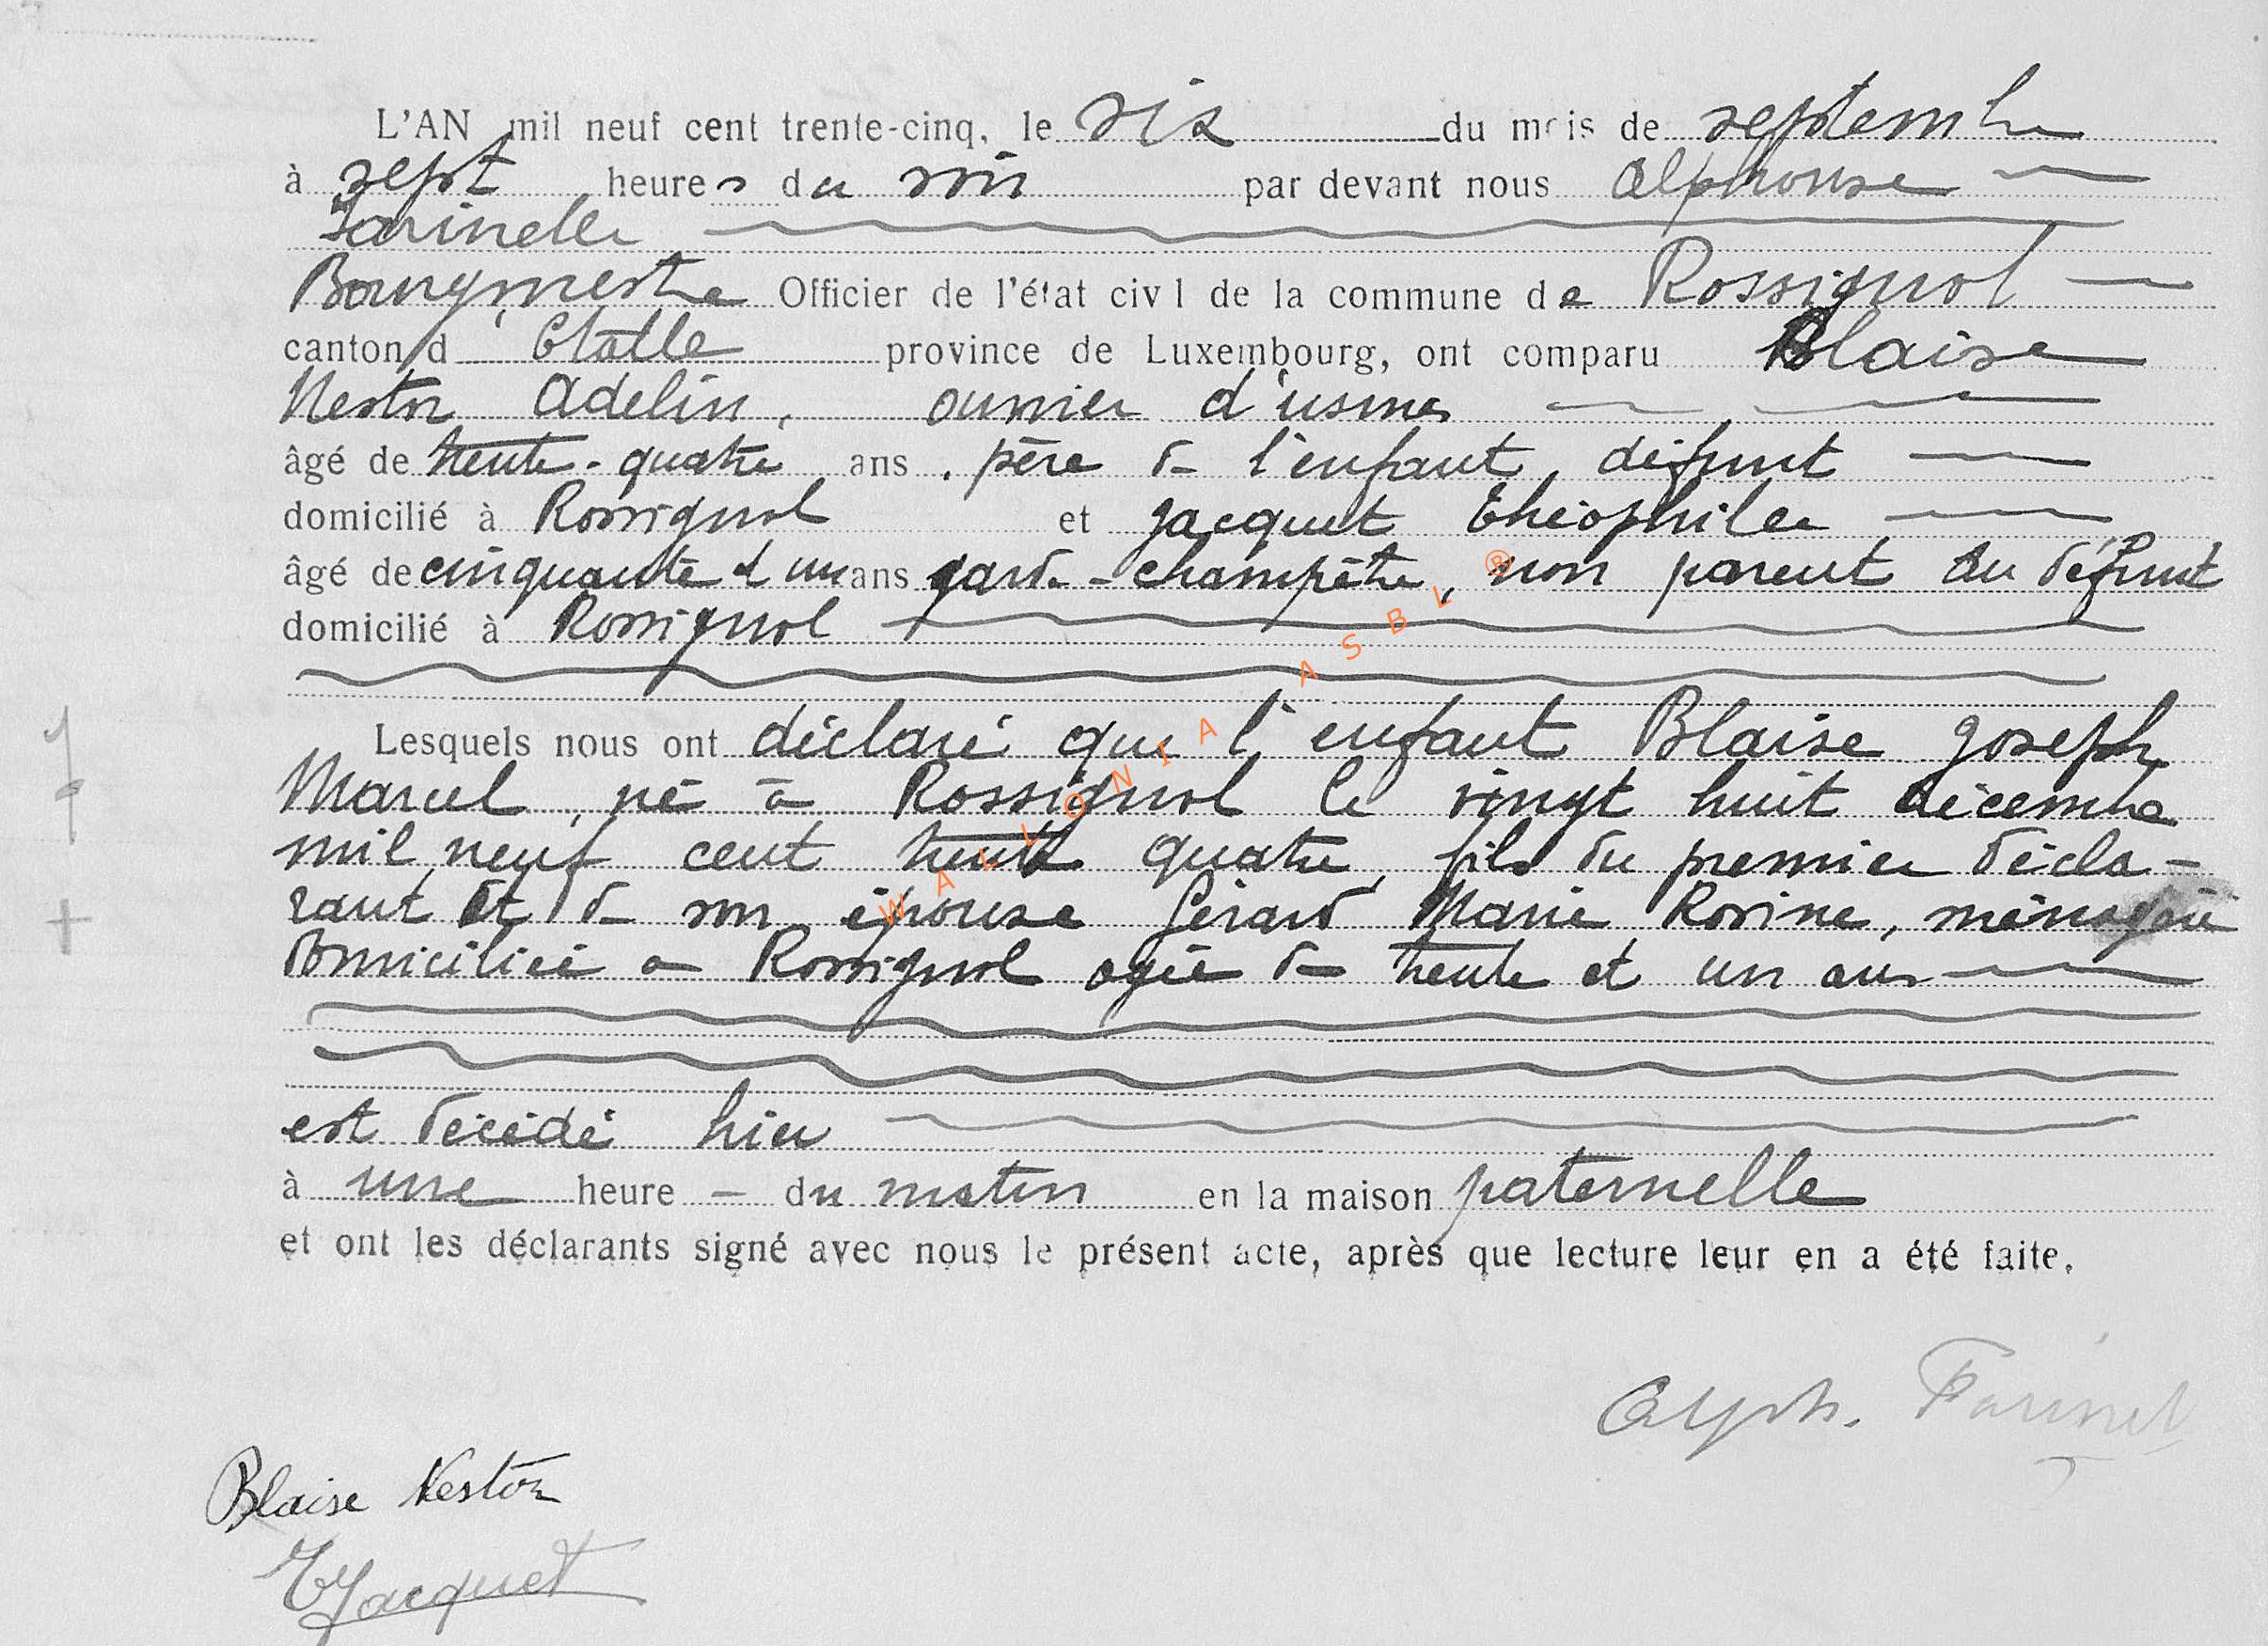 L'AN mil neuf cent trente-cinq, le six du mois de septembre
à sept heures du soir par devant nous Alphonse
Farinelle
Bourgmestre Officier de l'état civil de la commune de Rossignol
canton d' Etalle province de Luxembourg, ont comparu Blaise
Nestor Adelin, ouvrier d'usines
âgé de trente-quatre ans, père de l'enfant, défunt
domicilié à Rossignol et Jacquet Théophile
âgé de cinquante et un ans garde-champêtre, non parent du défunt
domicilié à Rossignol
Lesquels nous ont déclaré que l'enfant Blaise Joseph
Marcel, né à Rossignol le vingt huit décembre
mil neuf cent trente quatre, fils du premier décla-
rant et de son épouse Gérard Marie Rosine, ménagère
domiciliée à Rossignol agée de trente et un ans
est décédé hier
à une heure - du matin en la maison paternelle
et ont les déclarants signé avec nous le présent acte, après que lecture leur en a été faite.
Alph. Farinelle
Blaise Nestor
T Jacquet
WALLONIA ASBL ®